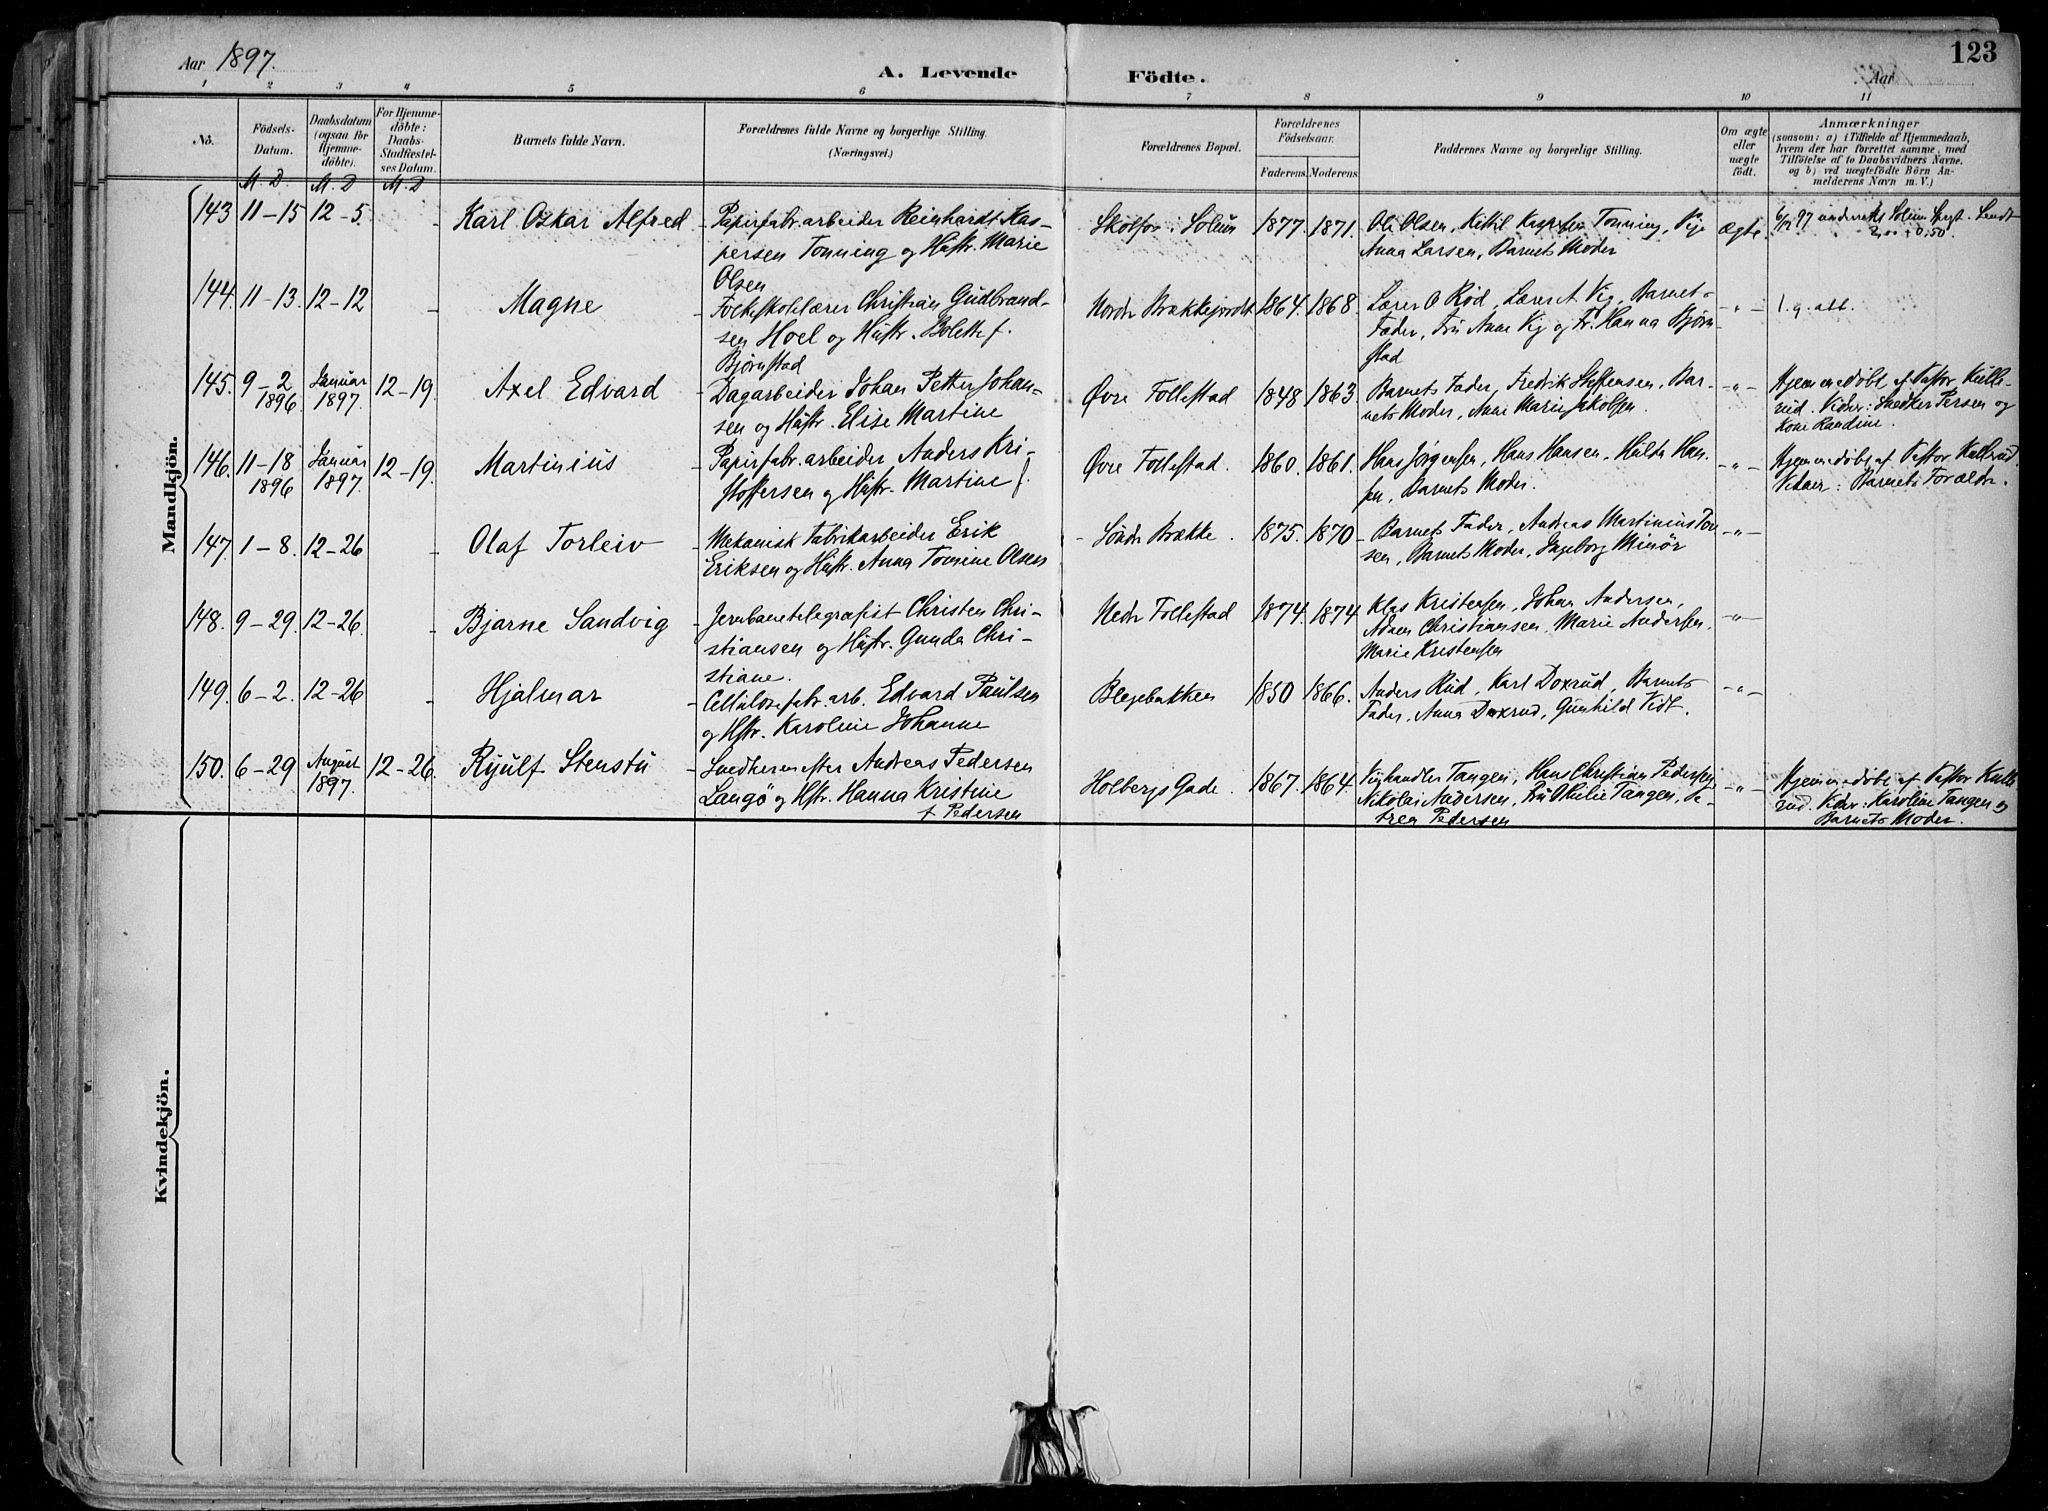 Aar 1897.
A. Levende Födte.
Aar
123
1 2 3 4 5 6 7 8 9 10 11
No.
Födsels-Datum.
Daabsdatum (ogsaa for Hjemme-döbte).
For Hjemme-döbte: Daabs-Stadfæstel-ses Datum.
Barnets fulde Navn.
Forældrenes fulde Navne og borgerlige Stilling.
(Næringsvei.)
Forældrenes Bopæl.
Forældrenes Födselsaar.
Faderens. Moderens.
Faddernes Navne og borgerlige Stilling.
Om ægte eller uægte födt.
Anmærkninger
(saasom: a) i Tilfælde af Hjemmedaab,
hvem der har forrettet samme, med
Tilföielse af to Daabsvidners Navne.
og b) ved uægtefödte Börn An-
melderens Navn m. V.)
M. D. M. D M. D
Mandkjön.
143 11-15 12-5. - Karl Oskar Alfred - Papirfabr.arbeider Reinhardt Kas-
persen Tonning og Hustr. Marie
Olsen
Skotfos i Solum 1877. 1871. Ole Olsen, Kittil Kaspersen Tonning,
Anna Larsen, Barnets Moder
Ægte. 6/12 97 Solum
144. 11-13. 12-12 - Magne - Folkeskolelærer Christian Gudbrand-
sen Hoel og Hustr. Bolette f.
Bjørnstad
Nordr Brækkejordet 1864. 1868. Lærer O Rød, Lærer A Vig, Barnets
Fader, Fru Anne Vig og Fr. Hanna Bjørn-
stad
-"- l. g. att.
145. 9-2 1896 Januar 1897. 12-19. Axel Edvard - Dagarbeider Johan Petter Johan-
sen og Hustr. Elise Martine
Øvre Follestad 1848 1863 Barnets Fader, Fredrik Steffensen, Bar-
nets Moder, Anne Marie Jakobsen.
-"- Hjemmedøbt af Pastor Kulle-
rud. Vidner: Snedker Persen og
Kone Randine.
146. 11-18 1896 Januar 1897. 12-19. Martinius - Papirfabr.arbeider Anders Kri-
stoffersen og Hustr. Martine f.
Øvre Follestad. 1860. 1861. Hans Jörgensen, Hans Hansen, Hulda Han-
sen, Barnets Moder.
-"- Hjemmedøbt af Pastor Kullerud.
Vidner: Barnets Forældre.
147. 1-8. 12-26 - Olaf Torleiv - Mekanisk Fabrikarbeider Erik
Eriksen og Hustr. Anna Tomine Olsen
- Söndr Brække. 1875. 1870 - Barnets Fader, Andreas Martinius Ton-
sen, Barnets Moder, Ingeborg Minör
-"-
148. 9-29. 12-26. - Bjarne Sandvig - Jernbanetelegrafist Christen Chri-
stiansen og Hustr. Gunda Chri-
stiane.
Nedr Follestad 1874. 1874 Klas Kristensen, Johan Andersen,
Adam Christiansen, Marie Andersen,
Marie Kristensen
-"-
149. 6-2. 12-26 - Hjalmar - Cellulosefabr.arb. Edvard Paulsen
og Hstr. Karoline Johanne
Blegebakken 1850 1866. Anders Rud, Karl Doxrud, Barnets
Fader, Anna Doxrud, Gunhild Vidt.
-"-
150. 6-29 August 1897. 12-26. Ryulf Stenstu - Andreas Pedersen
Langö og Hstr. Hanna Kristine
f Pedersen
Holbergs Gade. 1867. 1864. Tangen, Hans Christian Pedersen,
Nikolai Andersen, Fru Othilie Tangen, Pe-
trea Pedersen
-"- Hjemmedøbt af Pastor Kulle-
rud. Vidner: Karoline Tangen og
Barnets Moder.
Kvindekjön.